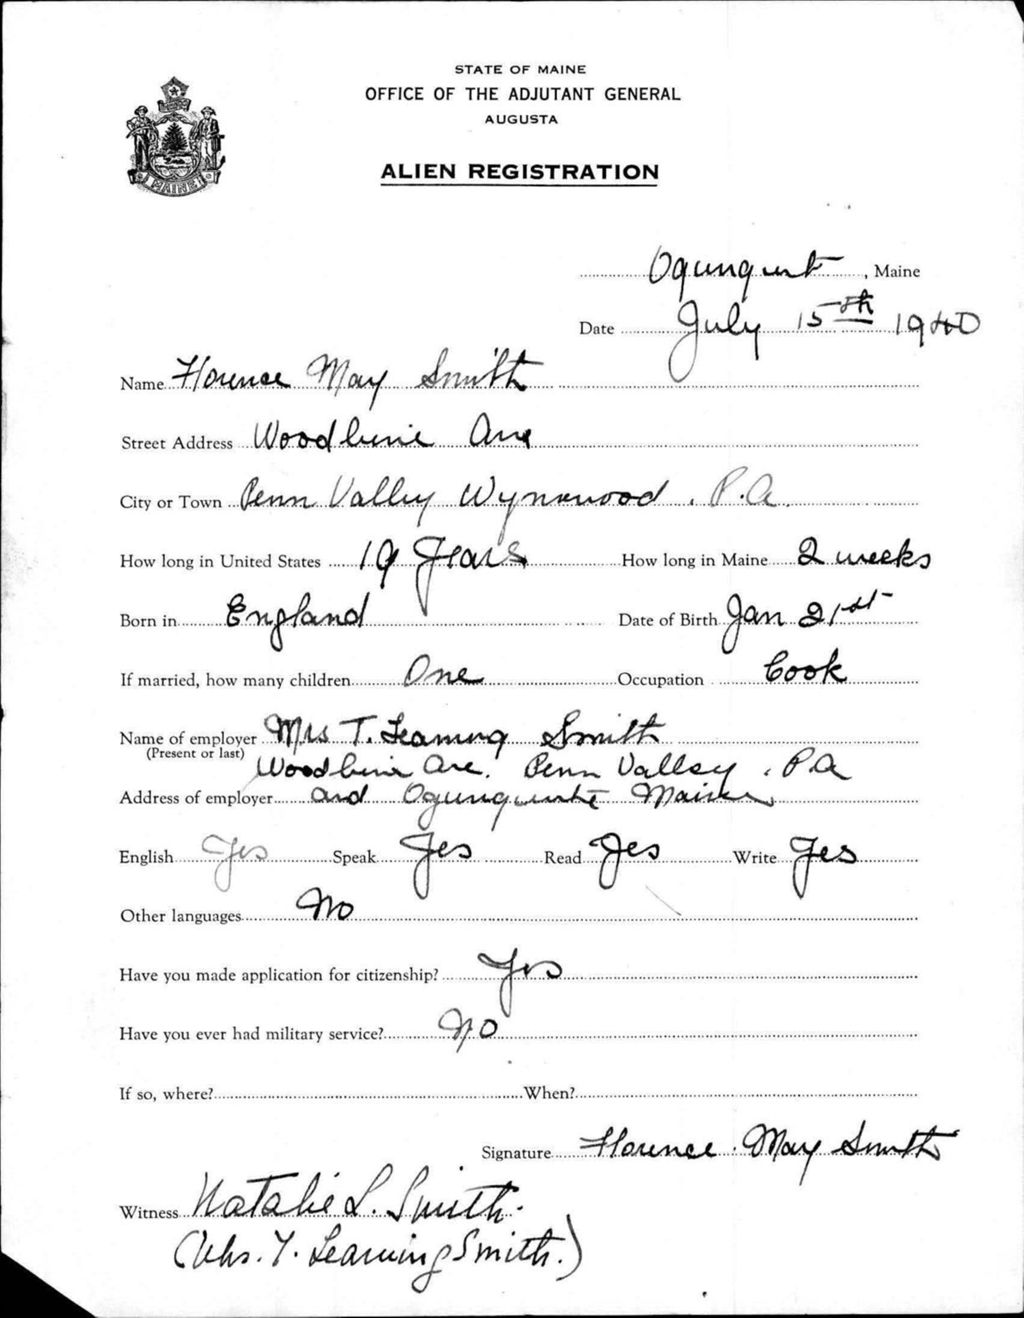 STATE OF MAINE
OFFICE OF THE ADJUTANT GENERAL
AUGUSTA
ALIEN REGISTRATION
MAINE
Ogunquit, Maine
Date July 15th 1940
Name Florence May Smith
Street Address Woodbine Ave
City or Town Penn Valley Wynnwood. P.A.
How long in United States 19 Years How long in Maine 2 weeks
Born in England Date of Birth Jan 21st
If married, how many children One Occupation Cook
Name of employer Mrs T. Leaming Smith
(Present or last)
Woodbine Ave. Penn Valley, PA
Address of employer and Ogunquite Maine
English Yes Speak Yes Read Yes Write Yes
Other languages No
Have you made application for citizenship? Yes
Have you ever had military service? No
If so, where? When?
Signature Florence May Smith
Witness Natalie L. Smith.
(Mrs. T. Leaming Smith.)